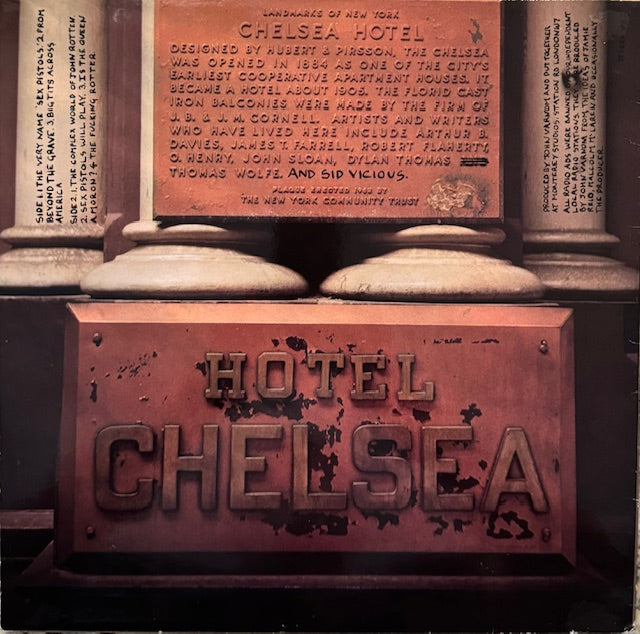 SIDE 1. 1 THE VERY NAME 'SEX PISTOLS'. 2 FROM
BEYOND THE GRAVE. 3. BIG TITS ACROSS
AMERICA
SIDE 2. 1. THE COMPLEX WORLD OF JOHN ROTTEN.
2. SEX PISTOLS WILL PLAY. 3. IS THE QUEEN
A MORON? 4 THE FUCKING ROTTER.
LANDMARKS OF NEW YORK
CHELSEA HOTEL
DESIGNED BY HUBERT & PIRSSON, THE CHELSEA
WAS OPENED IN 1884 AS ONE OF THE CITY'S
EARLIEST COOPERATIVE APARTMENT HOUSES. IT
BECAME A HOTEL ABOUT 1905. THE FLORID CAST
IRON BALCONIES WERE MADE BY THE FIRM OF
J. B. & J. M. CORNELL. ARTISTS AND WRITERS
WHO HAVE LIVED HERE INCLUDE ARTHUR B.
DAVIES, JAMES T. FARRELL, ROBERT FLAHERTY,
O. HENRY, JOHN SLOAN, DYLAN THOMAS
THOMAS WOLFE. AND SID VICIOUS.
PLAQUE ERECTED 1962 BY
THE NEW YORK COMMUNITY TRUST
PRODUCED BY JOHN VARNOM AND PUT TOGETHER
AT MONTEREY STUDIOS. STATION RD LONDON N7
ALL RADIO ADS WERE BANNED BY INDEPENDENT
LOCAL RADIO STATIONS. THEY WERE PRODUCED
BY JOHN VARNOM FROM THE IDEAS OF JAMIE
REID, MALCOLM McLAREN AND OCCASIONALLY
THE PRODUCER.
HOTEL
CHELSEA